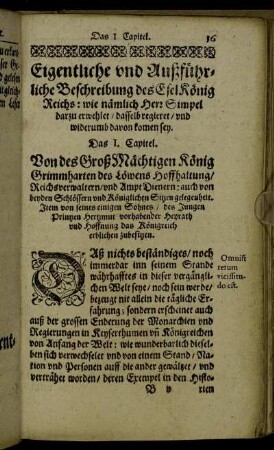 Das I Capitel. 36
Eigentliche vnd Außführ-
liche Beschreibung des Esel König
Reichs: wie nämlich Herr Simpel
darzu erwehlet / dasselb regieret / vnd
widerumb davon komen sey.
Das I. Capitel.
Von des Groß Mächtigen König
Grimmharten des Löwens Hoffhaltung /
Reichsverwaltern / vnd Ampt Dienern: auch von
beyden Schlössern vnd Königlichen Sitzen gelegenheit.
Item von seines einigen Sohnes / des Jungen
Printzen Hertzmut vorhabender Heyrath
vnd Hoffnung das Königreich
erblichen zubesitzen.
DAß nichts beständiges / noch
immerdar inn seinem Stande
währhafftes in dieser vergängli-
chen Welt seye / noch sein werde /
bezeuget nit allein die tägliche Er-
fahrung; sondern erscheinet auch
auß der grossen Enderung der Monarchien vnd
Regierungen in Keyserthumen vñ Königreichen
von Anfang der Welt: wie wunderbarlich diesel-
ben sich verwechseler vnd von einem Stand / Na-
tion vnd Personen auff die ander gewältzet / vnd
verträhet worden / deren Exempel in den Histo-
B v rien
Omniũ
rerum
vicissitu-
do est.